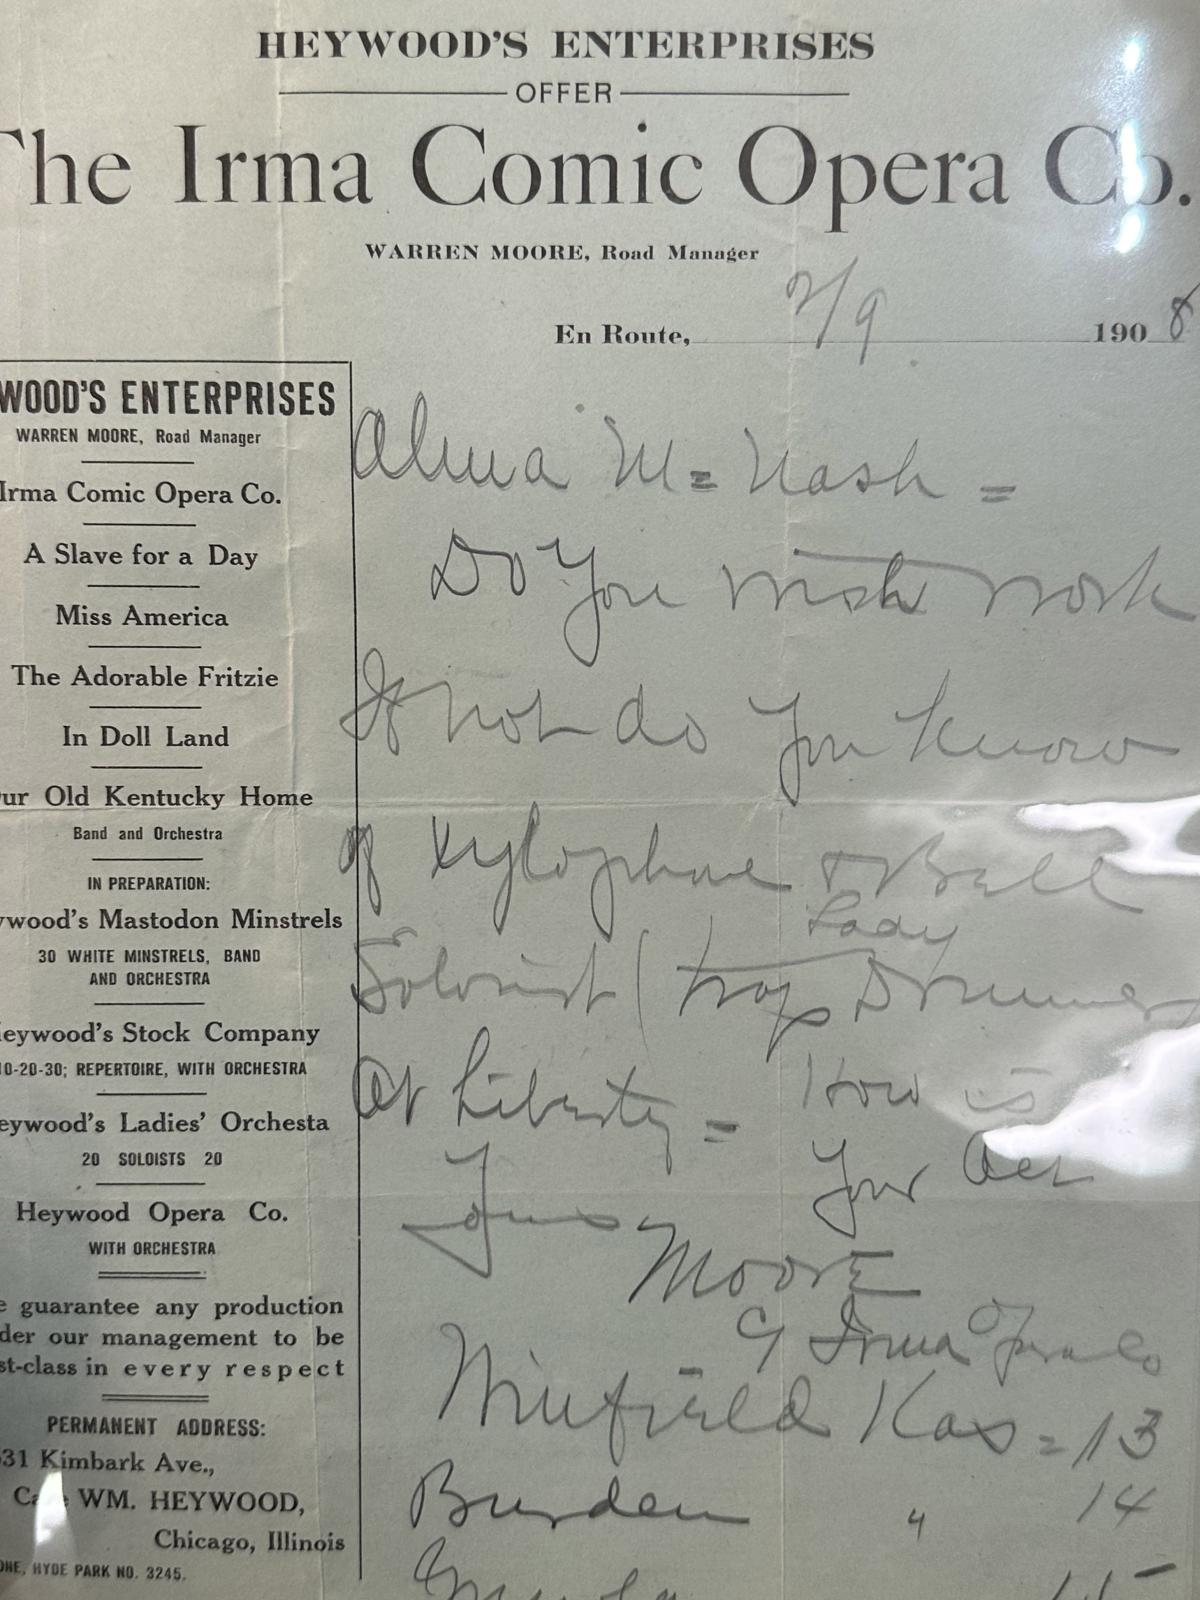 HEYWOOD'S ENTERPRISES
OFFER
The Irma Comic Opera Co.
WARREN MOORE, Road Manager
En Route, 2/9 1908
WOOD'S ENTERPRISES
WARREN MOORE, Road Manager
Irma Comic Opera Co.
A Slave for a Day
Miss America
The Adorable Fritzie
In Doll Land
ur Old Kentucky Home
Band and Orchestra
IN PREPARATION:
ywood's Mastodon Minstrels
30 WHITE MINSTRELS, BAND
AND ORCHESTRA
eywood's Stock Company
10-20-30; REPERTOIRE, WITH ORCHESTRA
eywood's Ladies' Orchesta
20 SOLOISTS 20
Heywood Opera Co.
WITH ORCHESTRA
e guarantee any production
der our management to be
st-class in every respect
PERMANENT ADDRESS:
31 Kimbark Ave.,
Care WM. HEYWOOD,
Chicago, Illinois
ONE, HYDE PARK NO. 3245.
Alma M = Nash =
Do You wish work
If not do you know
of xylophone & Bell
Soloist (trap Lady Drummer
At Liberty = How is
Your Act
Yours
Moore
c/o Irma Opera Co
Winfield Kas = 13
Burden " 14
15